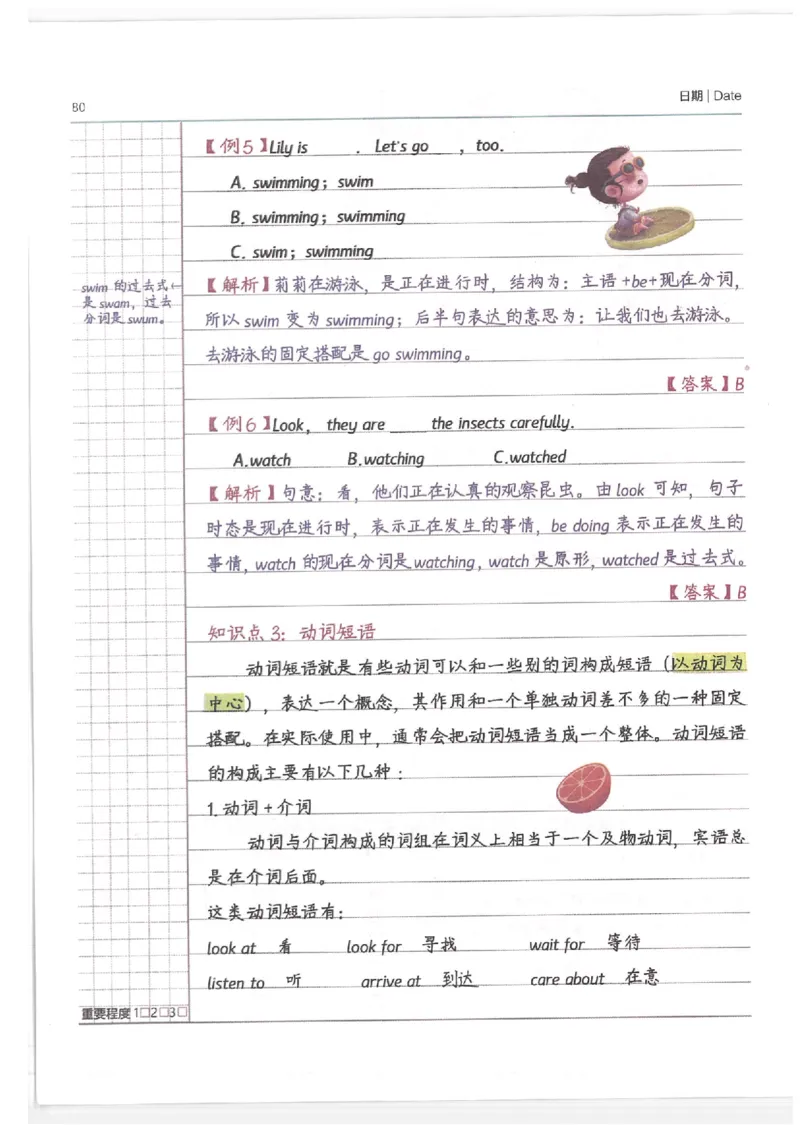 80
日期 | Date
【例5】Lily is ____. Let's go ____, too.
A. swimming; swim
B. swimming; swimming
C. swim; swimming
swim 的过去式←
是 swam，过去
分词是 swum。
【解析】莉莉在游泳，是正在进行时，结构为：主语+be+现在分词，
所以 swim 变为 swimming；后半句表达的意思为：让我们也去游泳。
去游泳的固定搭配是 go swimming。
【答案】B
【例6】Look, they are ____ the insects carefully.
A.watch B.watching C.watched
【解析】句意：看，他们正在认真的观察昆虫。由 look 可知，句子
时态是现在进行时，表示正在发生的事情，be doing 表示正在发生的
事情，watch 的现在分词是 watching，watch 是原形，watched 是过去式。
【答案】B
知识点 3：动词短语
动词短语就是有些动词可以和一些别的词构成短语（以动词为
中心），表达一个概念，其作用和一个单独动词差不多的一种固定
搭配。在实际使用中，通常会把动词短语当成一个整体。动词短语
的构成主要有以下几种：
1. 动词 + 介词
动词与介词构成的词组在词义上相当于一个及物动词，宾语总
是在介词后面。
这类动词短语有：
look at 看 look for 寻找 wait for 等待
listen to 听 arrive at 到达 care about 在意
重要程度 1□2□3□